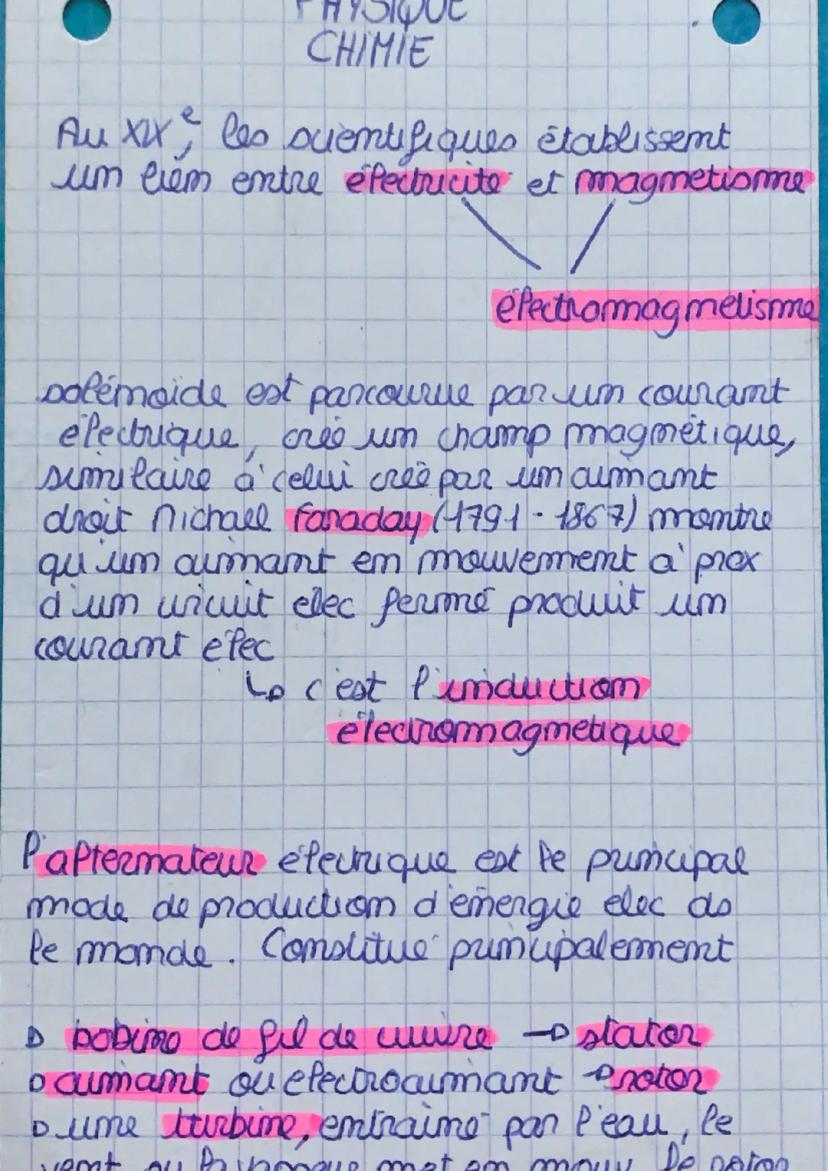 PHYSIQUE
CHIMIE
Au XIXe, les scientifiques établissent
un lien entre électricité et magnetisme
électromagnetisme
solénoide est parcourue par un courant
électrique, créé un champ magnétique,
similaire à celui créé par un aimant
droit Michael Faraday (1791 - 1867) montre
qu'un aimant en mouvement à prox
d'un circuit elec fermé produit un
courant elec
↳ c'est l'induction
électromagnetique
l'alternateur électrique est le principal
mode de production d'énergie elec ds
le monde. Constitué principalement
▷ bobine de fil de cuivre → stator
▷ aimant ou electroaimant → rotor
▷ une turbine, entrainé par l'eau, le
vent ou la vapeur met en mouv le rotor